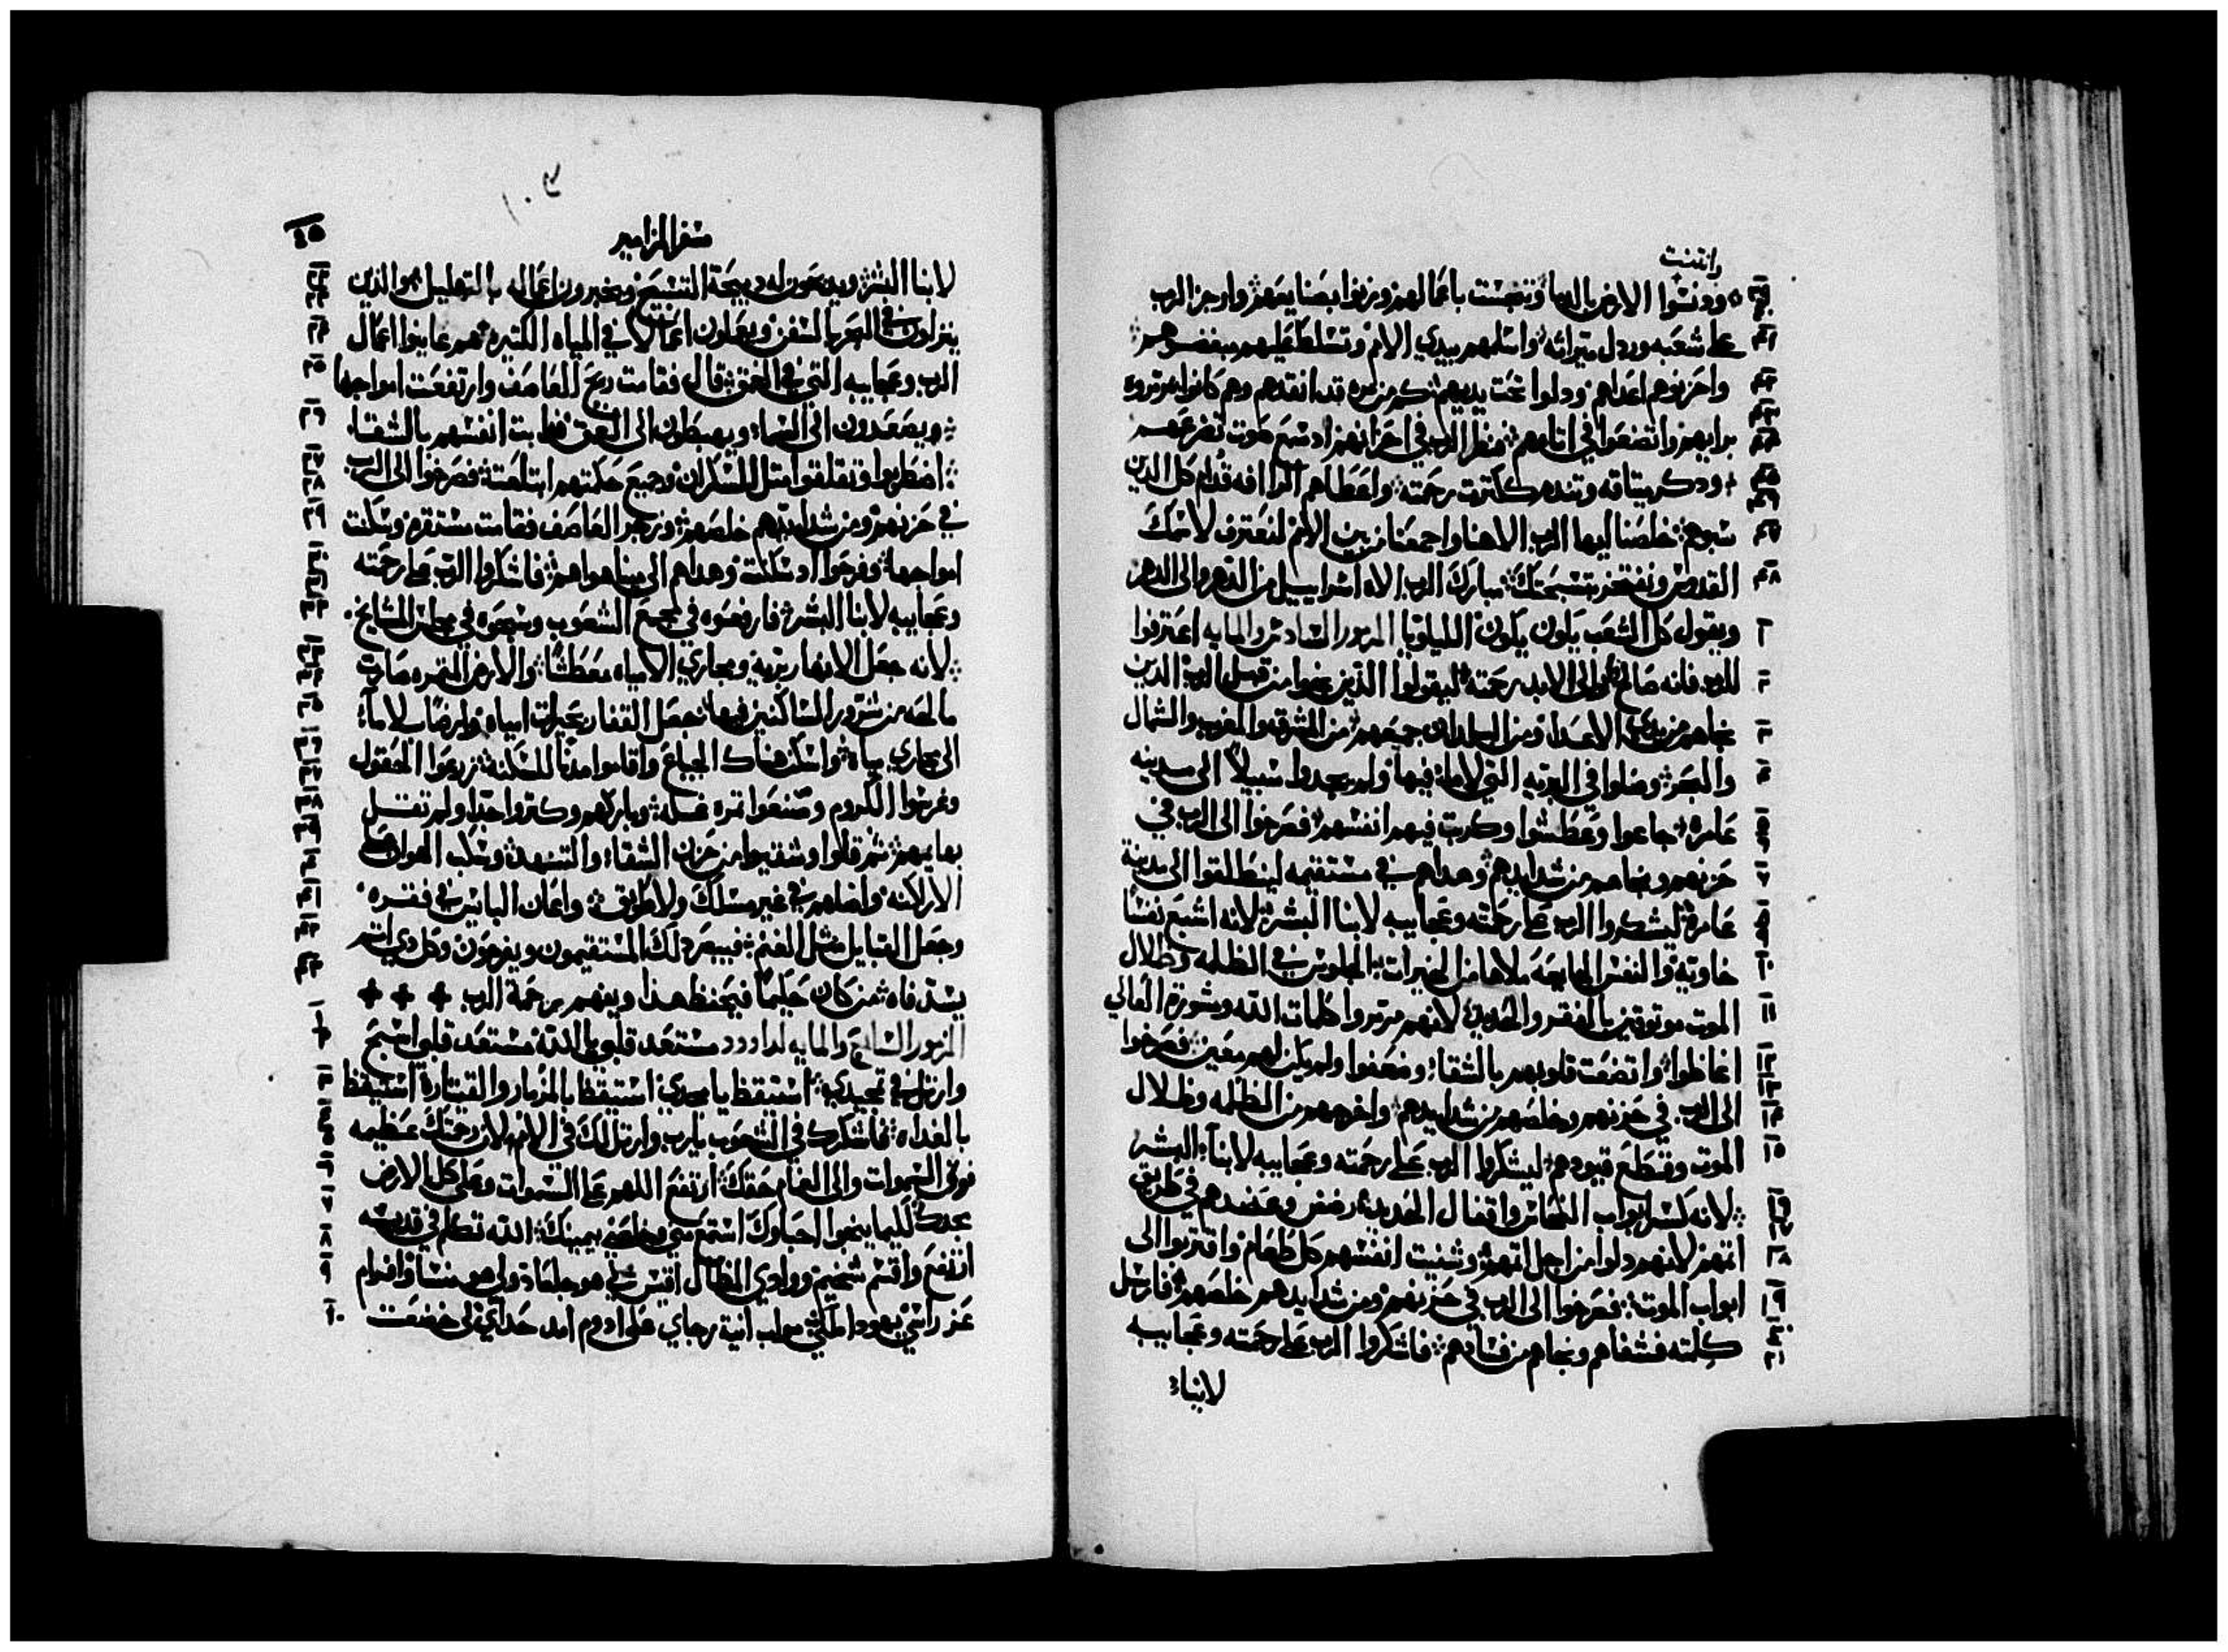 وانتنت
ودنسوا الارض بالدما وتنجست باعمالهم وزنوا بصنايعهم وارجز الرب
على شعبه وردل ميراثه واسلمهم بيدي الامم وتسلط عليهم مبغضوهم
واحزنوهم اعداهم ودلوا تحت يديهم كم من مره قد انقدهم وهم كانوا مرتروه
برايهم واتضعوا في اتامهم فنظر الرب في احزانهم اد سمع صوت تضرعهم
ودكر ميتاقه وتندم ككترت رحمته واعطاهم الراافه قدام كل الدين
سبوهم خلصنا ايها الرب الاهنا واجمعنا من بين الامم لنعترف لاسمك
القدوس ونفتخر بتسبحتك مبارك الرب الاه اسراييل من الدهر والى الدهر
ويقول كل الشعب يكون يكون الليلويا المزمور السادس والمايه اعترفوا
للرب فانه صالح والى الابد رحمته ليقولوا الذين نجوا من قبل الرب الدين
نجاهم من يدي الاعدا ومن البلدان جمعهم من المشرق والمغرب والشمال
والبحر وضلوا في البريه التي لاما فيها ولم يجدوا سبيلاً الى مدينه
عامره جاعوا وعطشوا وكربت فيهم انفسهم فصرخوا الى الرب في
حزنهم ونجاهم من شدايدهم وهداهم في مستقيمه لينطلقوا الى مدينة
عامرة ليشكروا الرب على رحمته وعجاييبه لابنا البشر لانه اشبع نفسًا
خاوية والنفس الجايعه ملاها من الخيرات الجلوس في الظلمه وظلال
الموت موتوقين بالفقر والحديد لانهم مرتروا كلمات الله وشورة العالي
اغاظوا واتضعت قلوبهم بالشقا وضعفوا ولم يكن لهم معين فصرخوا
الى الرب في حزنهم وخلصهم من شدايدهم واخرجهم من الظلمه وظلال
الموت وقطع قيودهم ليشكروا الرب على رحمته وعجاييبه لابنا البشر
لانه كسر ابواب النحاس واقفال الحديد رضض وعضدهم في طريق
اتمهم لانهم دلوا من اجل اتمهم وشنيت انفسهم كل طعام واقتربوا الى
ابواب الموت فصرخوا الى الرب في حزنهم ومن شدايدهم خلصهم فارسل
كلمته فشفاهم ونجاهم من فسادهم فاشكروا الرب على رحمته وعجاييبه
لابنا
سفر المزامير
لابنا البشر ويدبحون له دبيحة التسبيح ويخبرون اعماله بالتهليل والذين
ينزلون في البحر بالسفن ويعملون اعمالاً في المياه الكتيره هم عاينوا اعمال
الرب وعجاييبه التي في العمق قال فقامت ريح العاصف وارتفعت امواجها
ويصعدون الى السما ويهبطون الى العمق انفسهم بالشقا
اضطربوا وتقلقوا متل السكران وجميع حكمتهم ابتلعت فصرخوا الى الرب
في حزنهم ومن شدايدهم خلصهم وزجر العاصف فقامت مستقره وسكنت
امواجها وفرحوا اد سكنت وهداهم الى مينا هواهم فاشكروا الرب على رحمته
وعجاييبه لابنا البشر فارفعوه في مجمع الشعوب وسبحوه في مجلس المشايخ
لانه جعل الانهار برية ومجاري الامياه معطشًا والارض التمره صارت
مالحه من شرور الساكنين فيها جعل القفار بحيرات امياه وارضًا بلاما
الى مجاري مياه واسكن هناك الجياع واقاموا مدنًا للسكنه زرعوا الحقول
وغرسوا الكروم وصنعوا تمره غله وباركهم وكتروا جدًا ولم تقلل
بهايمهم تم قلوا وشقيوا من حزن الشقا والتنهد وسكب الهوان على
الاراكنه واضلهم في غير مسلك ولا طريق واعان البايس في فقره
وجعل القبايل متل الغنم فيبصر دلك المستقيمون ويفرحون وكل دي اتم
يسد فاه من كان حكيمًا فيحفظ هذا ويفهم برحمة الرب
المزمور السابع والمايه لداوود مستعد قلبي يا الله مستعد قلبي اسبح
وارتل في تمجيدي استيقظ يامجدي استيقظ بالمزمار والقيتارة استيقظ
بالغداه فاشكرك في الشعوب يارب وارتل لك في الامم لان رحمتك عظيمه
فوق السموات والى الغمام حقك ارتفع اللهم على السموات وعلى كل الارض
مجدك لكيما ينجوا احباوك استمع مني وخلصني بيمينك الله تكلم في قدسه
ارتفع واقسم شخيم ووادي المظال اقيس لي هو جلعاد ولي هو منسا وافرام
عز راسي يهودا ملكي مواب انية رجاي على ادوم امد حداي لي خضعت